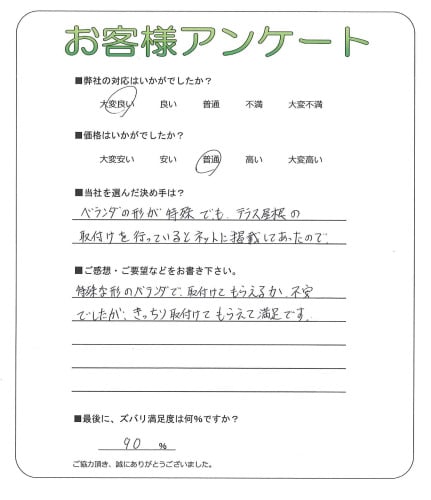 お客様アンケート
■弊社の対応はいかがでしたか？
大変良い 良い 普通 不満 大変不満
■価格はいかがでしたか？
大変安い 安い 普通 高い 大変高い
■当社を選んだ決め手は？
ベランダの形が特殊でも、テラス屋根の
取付けを行っているとネットに掲載してあったので。
■ご感想・ご要望などをお書き下さい。
特殊な形のベランダで、取付けてもらえるか、不安
でしたが、きっちり取付けてもらえて満足です。
■最後に、ズバリ満足度は何%ですか？
90 %
ご協力頂き、誠にありがとうございました。